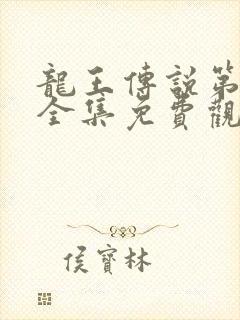 龍王傳說第
全集免費觀
侯寶林